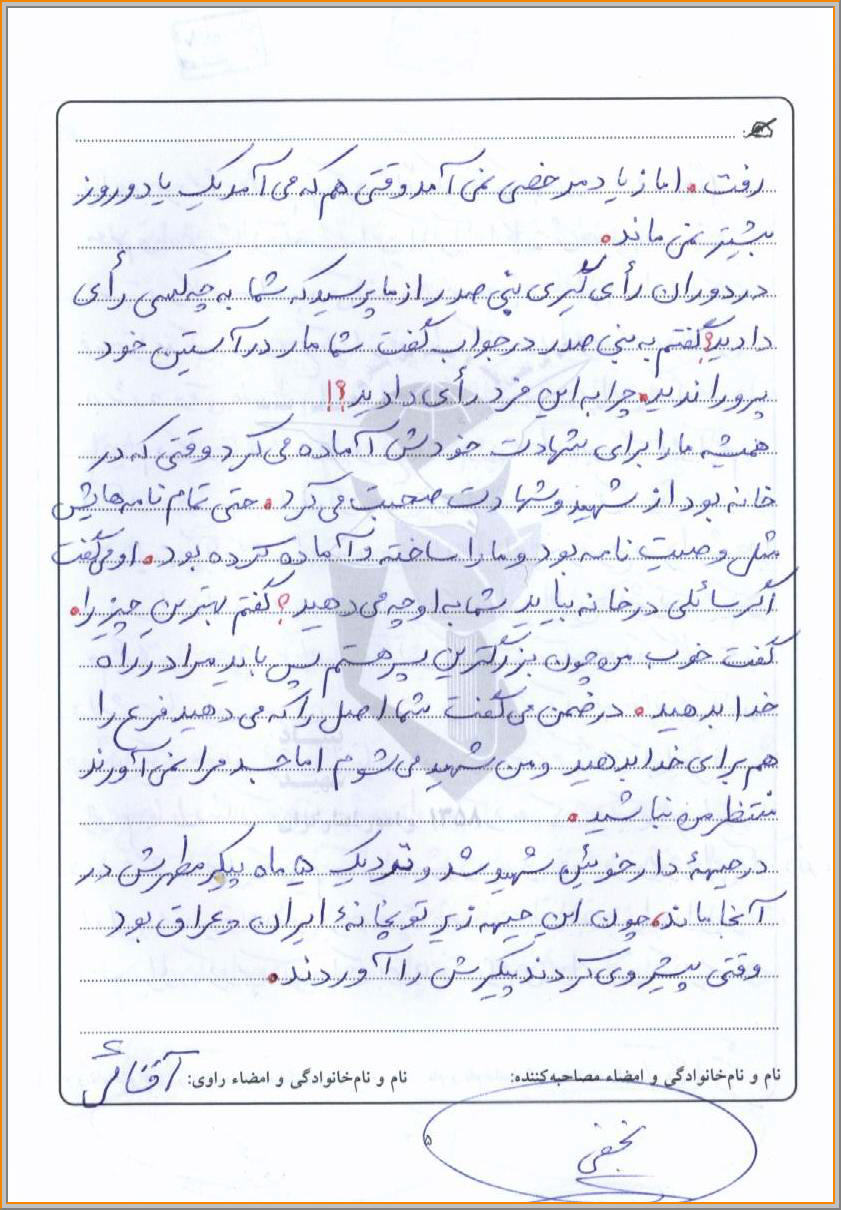 رفت. اما زیاد مرخصی نمی آمد وقتی هم که می آمد یک یا دو روز
بیشتر نمی ماند.
در دوران رأی گیری بنی صدر از ما پرسید که شما به چه کسی رأی
دادید؟ گفتم به بنی صدر در جواب گفت شما مار در آستین خود
پروراندید. چرا به این فرد رأی دادید؟!
همیشه ما را برای شهادت خودش آماده می کرد وقتی که در
خانه بود از شهید و شهادت صحبت می کرد. حتی تمام نامه هایش
مثل وصیت نامه بود و ما را ساخته و آماده کرده بود. او می گفت
اگر سائلی در خانه بیاید شما به او چه می دهید؟ گفتم بهترین چیز را.
گفت خوب من چون بزرگترین پسر هستم پس باید مرا در راه
خدا بدهید. در ضمن می گفت شما اصل را که می دهید فرع را
هم برای خدا بدهید و من شهید می شوم اما جسد مرا نمی آورند
منتظر من نباشید.
در جبهۀ دارخوئین شهید شد و نزدیک ۵ ماه پیکر مطهرش در
آنجا ماند، چون این جبهه زیر توپخانۀ ایران و عراق بود
وقتی پیشروی کردند پیکرش را آوردند.
نام و نام‌خانوادگی و امضاء مصاحبه‌کننده: نام و نام‌خانوادگی و امضاء راوی: آقائی
نجفی
۵